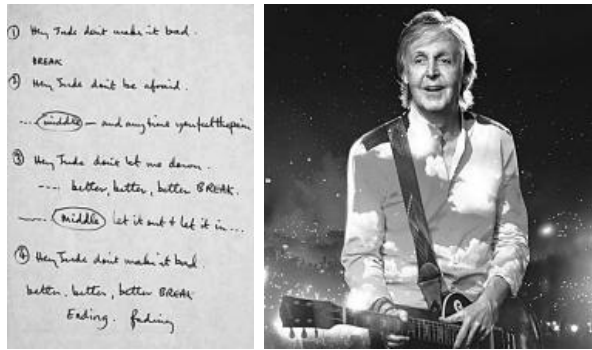 ① Hey Jude don't make it bad.
BREAK
② Hey Jude don't be afraid.
.... middle — and any time you feel the pain
③ Hey Jude don't let me down.
---- better, better, better BREAK.
middle let it out & let it in ...
④ Hey Jude don't make it bad.
better, better, better BREAK
Ending. fading